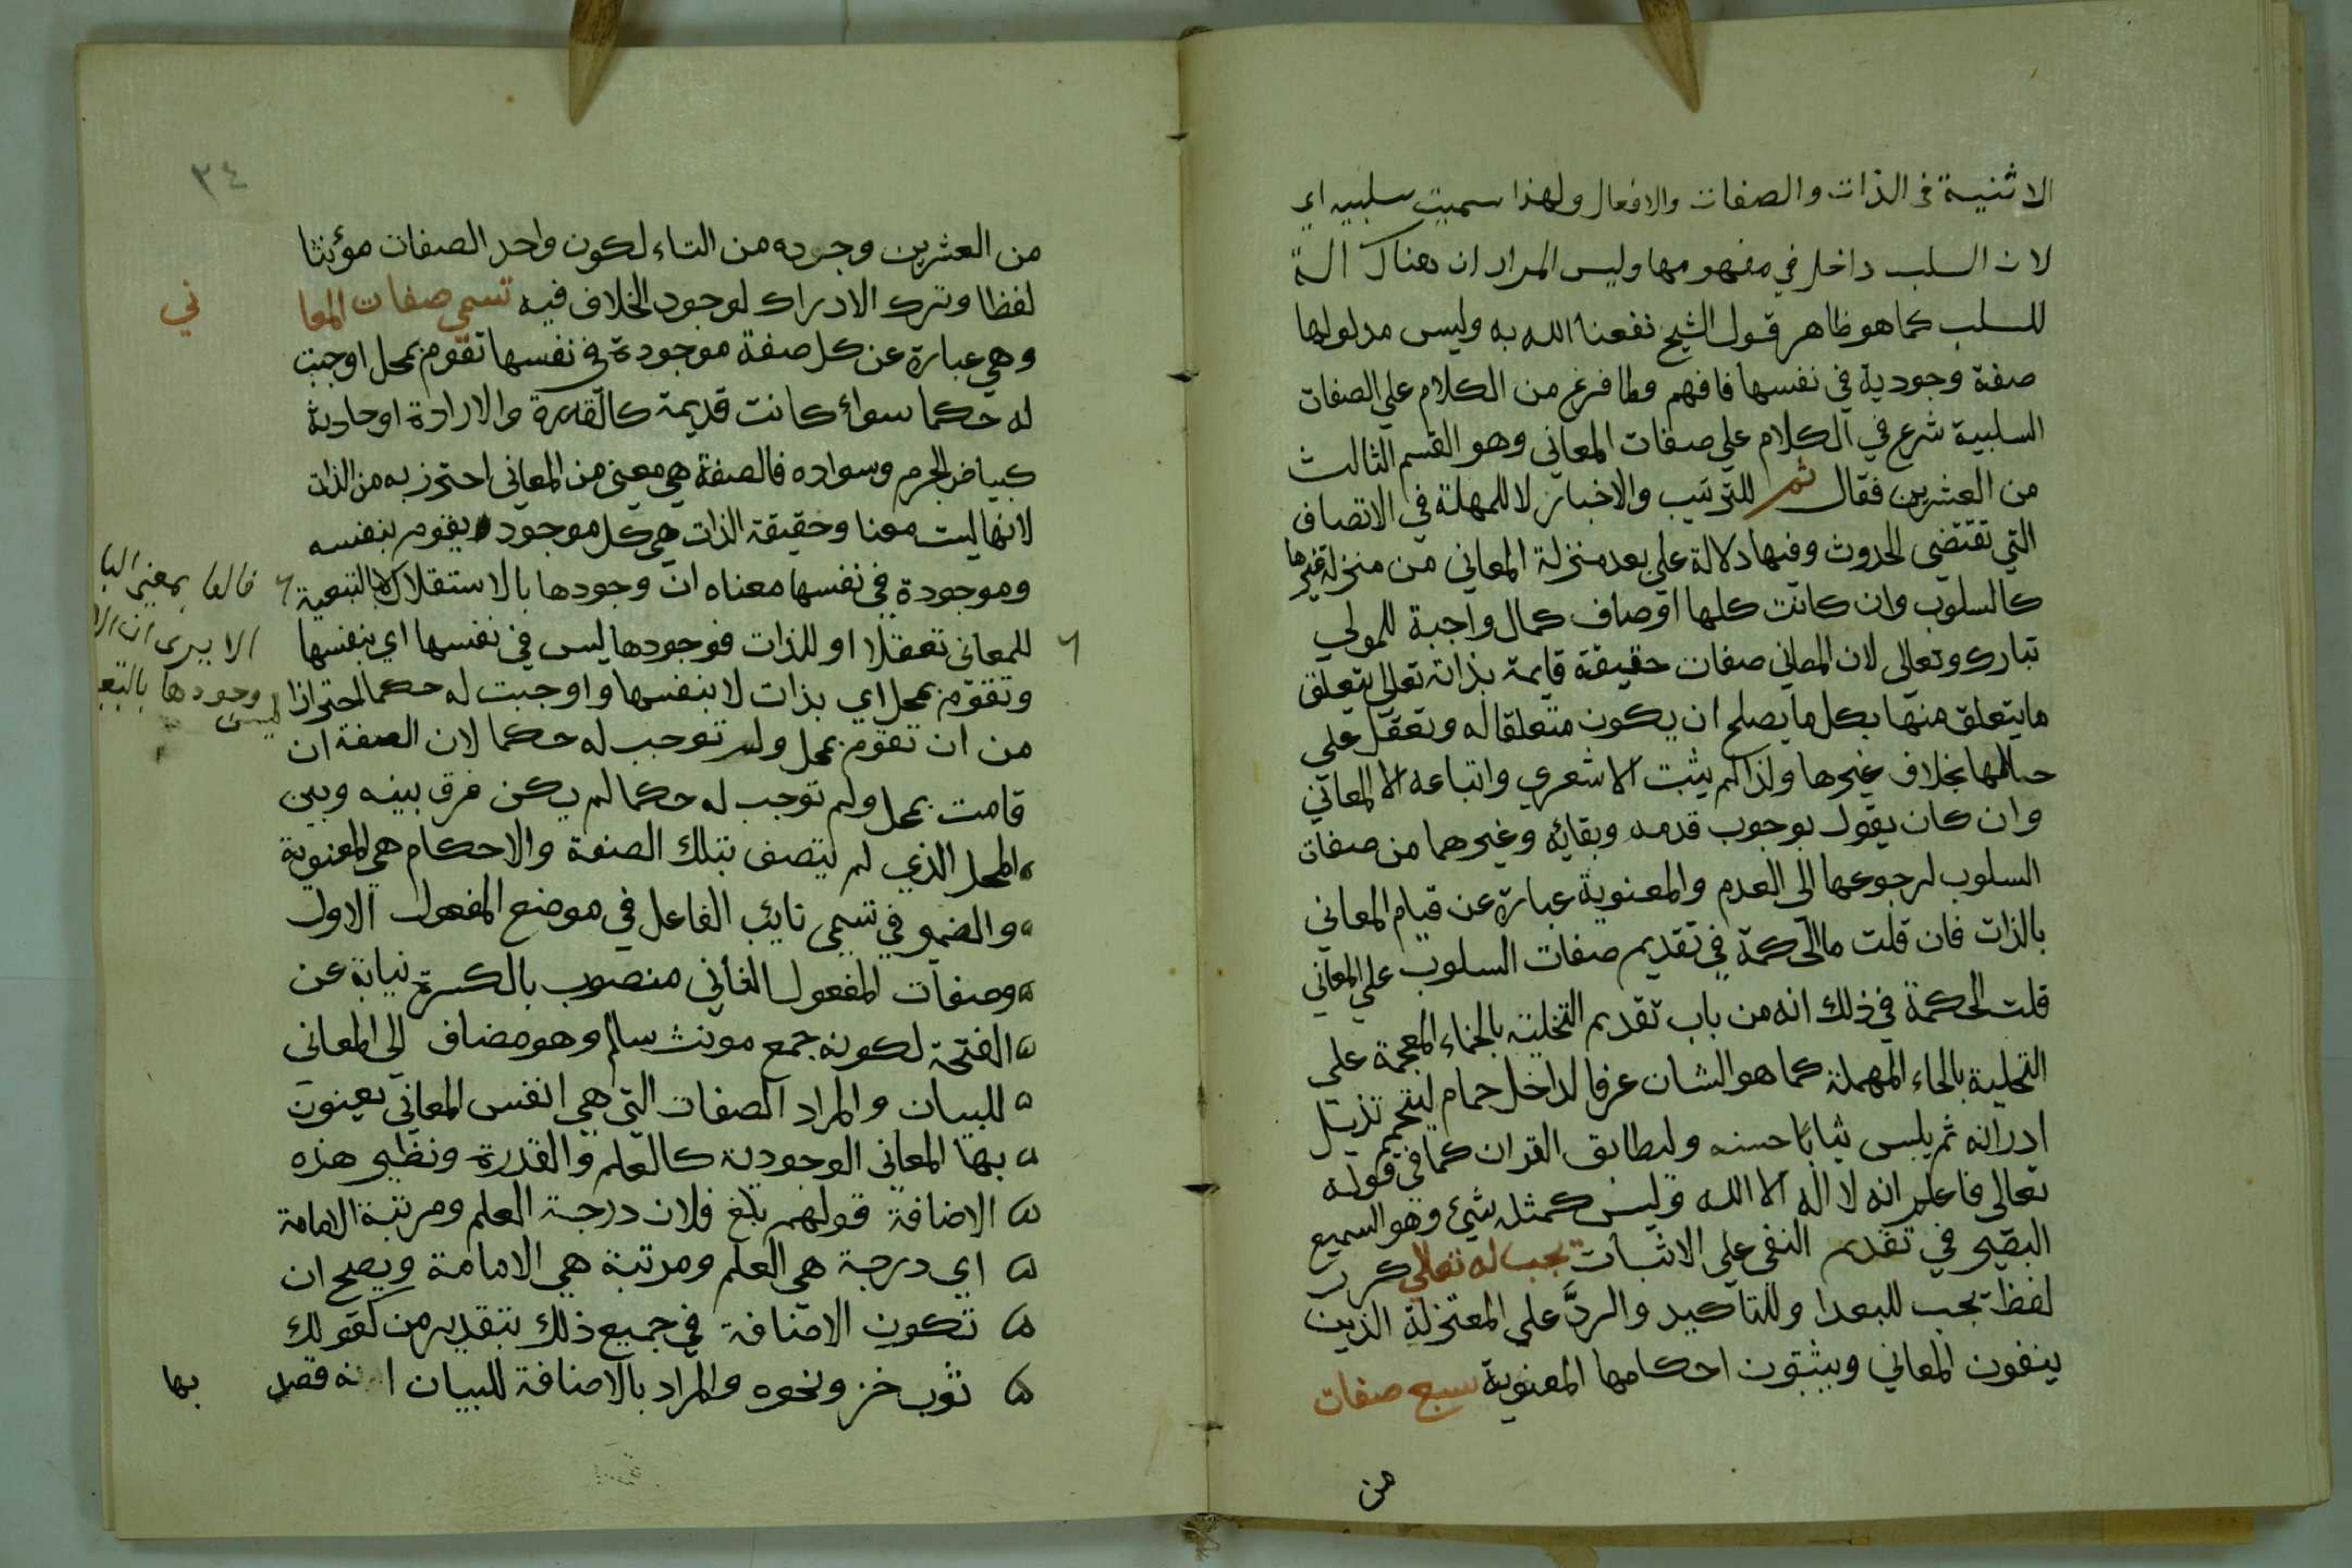 الاثنية في الذات والصفات والافعال ولهذا سميت سلبيه اي
لان السلب داخل في مفهومها وليس المراد ان هناك الة
للسلب كما هو ظاهر قول الشيخ نفعنا الله به وليس مدلولها
صفة وجودية في نفسها فافهم ولما فرغ من الكلام علي الصفات
السلبية شرع في الكلام علي صفات المعاني وهو القسم الثالث
من العشرين فقال ثم للترتيب والاخبار لا للمهلة في الاتصاف
التي تقتضي الحدوث وفيها دلالة علي بعد منزلة المعاني من منزلة غيرها
كالسلوب وان كانت كلها اوصاف كمال واجبة للمولي
تبارك وتعالى لان المعاني صفات حقيقة قايمة بذاته تعالى يتعلق
ما يتعلق منها بكل ما يصلح ان يكون متعلقا له وتعقل علي
حيالها بخلاف غيرها ولذا لم يثبت الاشعري واتباعه الا المعاني
وان كان يقول بوجوب قدمه وبقائه وغيرهما من صفات
السلوب لرجوعها الى العدم والمعنوية عبارة عن قيام المعاني
بالذات فان قلت ما الحكمة في تقديم صفات السلوب علي المعاني
قلت الحكمة في ذلك انه من باب تقديم التخلية بالخاء المعجمة علي
التحلية بالحاء المهملة كما هو الشان عرفا لداخل حمام تذيل
ادرانه ثم يلبس ثيابا حسنه وليطابق القران كما في قوله
تعالى فاعلم انه لا اله الا الله وليس كمثله شيئ وهو السميع
البصير في تقديم النفي علي الاثبات تجب له تعالي كرر
لفظ تجب للبعد او للتاكيد والردَّ علي المعتزلة الذين
ينفون المعاني ويثبتون احكامها المعنوية سبع صفات
من
٣٤
من العشرين وجرده من التاء لكون واحد الصفات مؤنثا
لفظا وترك الادراك لوجود الخلاف فيه تسمى صفات المعا
ني
وهي عبارة عن كل صفة موجودة في نفسها تقوم بمحل اوجبت
له حكما سواء كانت قديمة كالقدرة والارادة او حادثة
كبياض الجرم وسواده فالصفة هي معنى من المعاني احترز به من الذات
لانها ليت معنا وحقيقة الذات هي كل موجود يقوم بنفسه
وموجودة في نفسها معناه ان وجودها بالاستقلال لا بالتبعية
للمعاني تعقلا او للذات فوجودها ليس في نفسها اي بنفسها
وتقوم بمحل اي بذات لا بنفسها واوجبت له حكما احترازا
من ان تقوم بمحل ولم توجب له حكما لان الصفة ان
قامت بمحل ولم توجب له حكما لم يكن فرق بينه وبين
المحل الذي لم يتصف بتلك الصفة والاحكام هي المعنوية
والضمير في تسمى نايب الفاعل في موضع المفعول الاول
وصفات المفعول الثاني منصوب بالكسرة نيابة عن
الفتحة لكونه جمع مونث سالم وهو مضاف الي المعاني
للبيان والمراد الصفات التي هي انفس المعاني يعنون
بها المعاني الوجودية كالعلم والقدرة ونظير هذه
الاضافة قولهم بلغ فلان درجة العلم ومرتبة الامامة
اي درجة هي العلم ومرتبة هي الامامة ويصح ان
تكون الاضافة في جميع ذلك بتقدير من كقولك
ثوب خز ونحوه والمراد بالاضافة للبيان انه قصد
بها
بمعنى البا
الا يرى ان
وجودها بالتبع
ليس